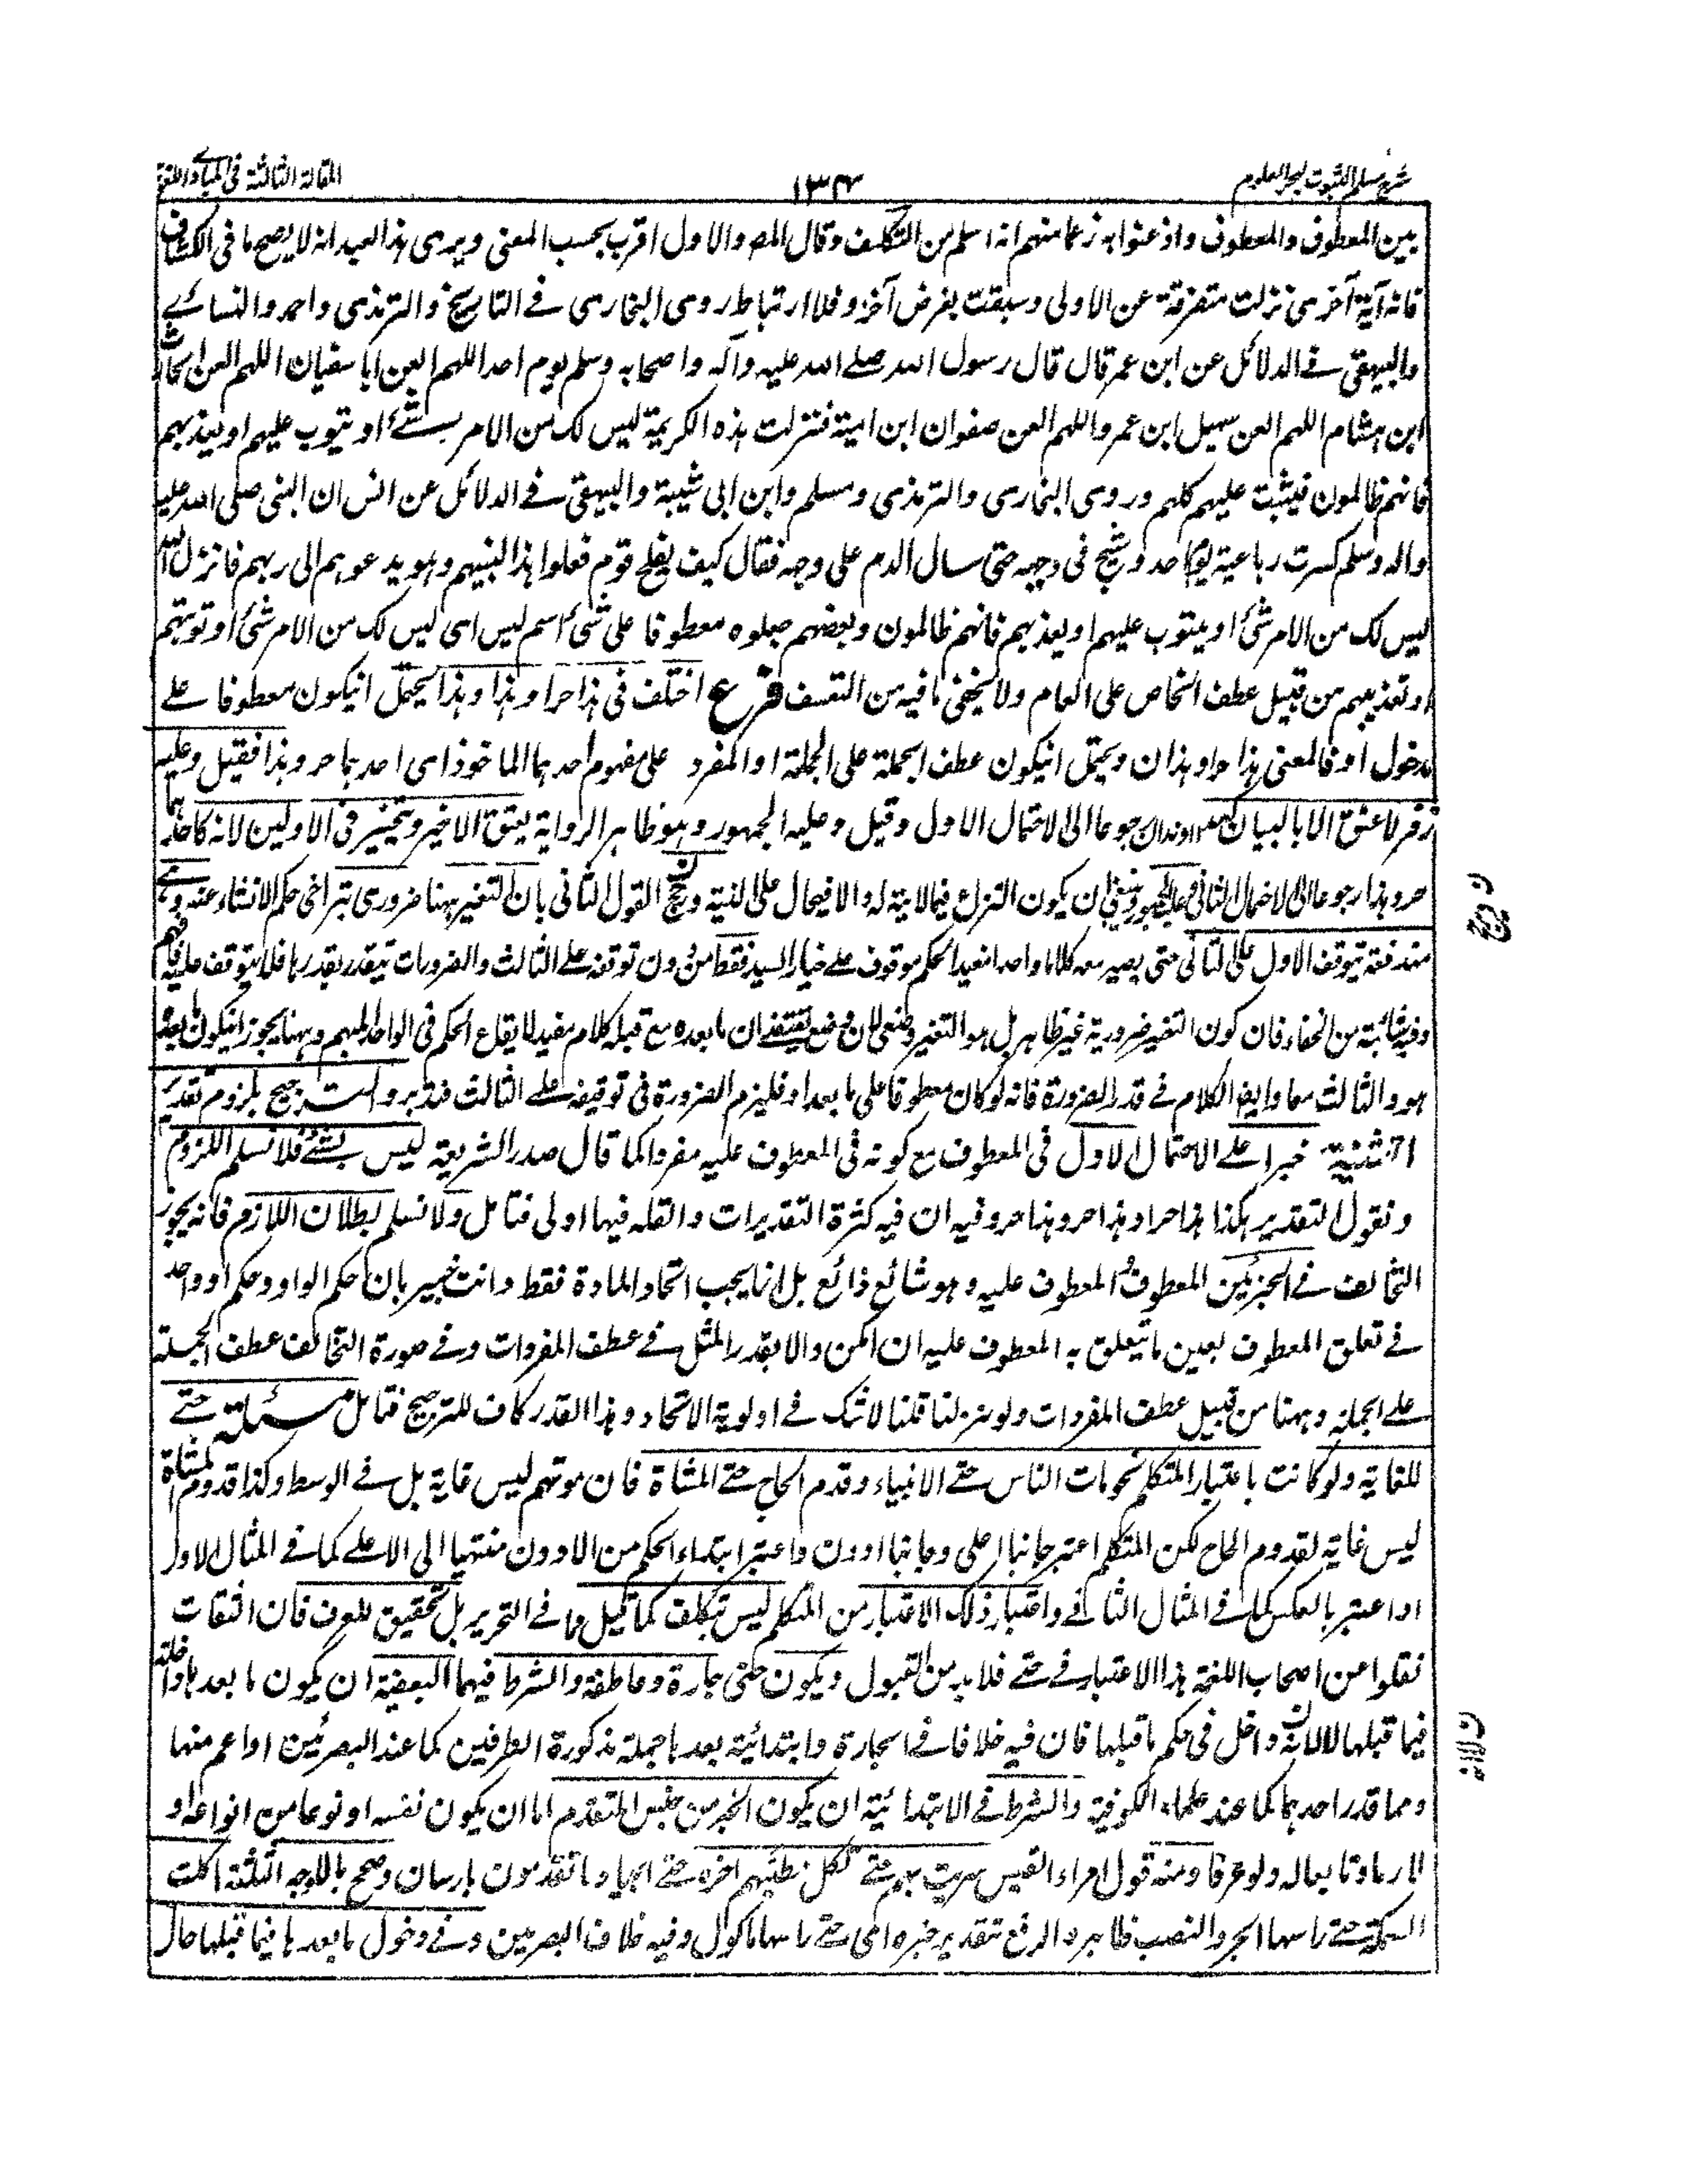 شرح مسلم الثبوت لبحر العلوم
١٣٤
المقالة الثالثة فى المبادى اللغوية
بين المعطوف والمعطوف واذعنوا به زعما منهم انه اسلم من التكلف وقال المص والاول اقرب بحسب المعنى ويرى هذا العبد انه لا يصح ما فى الكشاف
فانه آية أخرى نزلت متفرقة عن الاولى وسيقت بغرض آخر وفلا ارتباط روى البخارى فى التاريخ والترمذى واحمد والنسائے
والبيهقى فے الدلائل عن ابن عمر قال قال رسول الله صلے الله عليه وآله واصحابه وسلم يوم احد اللهم العن ابا سفيان اللهم العن الحارث
ابن هشام اللهم العن سهيل ابن عمرو اللهم العن صفوان ابن امية فنزلت هذه الكريمة ليس لك من الامر شئ او يتوب عليهم او يعذبهم
فانهم ظالمون فيثبت عليهم كلهم وروى البخارى والترمذى ومسلم وابن ابى شيبة والبيهقى فے الدلائل عن انس ان النبى صلى الله عليه
واله وسلم كسرت رباعية يوم احد وشج فى وجهه حتى سال الدم على وجهه فقال كيف يفلح قوم فعلوا هذا بنبيهم وهو يدعوهم الى ربهم فانزل الله
ليس لك من الامر شئ او يتوب عليهم او يعذبهم فانهم ظالمون وبعضهم جعلوه معطوفا على شئ اسم ليس اى ليس لك من الامر شئ او توبتهم
او تعذيبهم من قبيل عطف الخاص على العام ولا يخفى ما فيه من التعسف فرع اختلف فى هذا حر او هذا وهذا يحتمل انيكون معطوفا علے
مدخول او فالمعنى هذا حر او هذان ويحتمل انيكون عطف الجملة على الجملة او المفرد على مفهوم احدهما الماخوذ اى احدهما حر وهذا فقيل وعليه
زفر لا عتق الا بالبيان رجوعا الى الاحتمال الاول وقيل وعليه الجمهور وهو ظاهر الرواية يعتق الاخير ويتخير فى الاولين لانه كاحدهما
حر وهذا رجوعا الى الاحتمال الثانى وعليه الجمهور وينبغى ان يكون النزاع فيما لا نية له والا فيحال على النية ورجح القول الثانى بان التغير ههنا ضرورى بتراخى حكم الانشاء عنه وهے
مندفعة بتوقف الاول على الثانى حتى يصير معه كلاما واحدا مفيدا لحكم موقوف علے خيار السيد فقط من دون توقفه علے الثالث والضرورات تتقدر بقدرها فلا يتوقف عليه فافهم
وفيه شائبة من الخفاء فان كون التغير ضرورية غير ظاهر بل هو التغير وضعى لان وضع يقتضے ان ما بعده مع قبله كلام مفيد لايقاع الحكم فى الواحد المبهم وههنا يجوز انيكون ما بعد
هو والثالث معا وايضا الكلام فے قدر الضرورة فانه لو كان معطوفا على ما بعد او فليزم الضرورة فى توقيفه علے الثالث فتدبر والترجيح بلزوم تقدير
التثنية خبرا علے الاحتمال الاول فى المعطوف مع كونه فى المعطوف عليه مفردا كما قال صدر الشريعة ليس بشئ فلا نسلم اللزوم
ونقول التقدير هكذا هذا حر او هذا حر وهذا حر وفيه ان فيه كثرة التقديرات والقلة فيها اولى فتامل ولا نسلم بطلان اللازم فانه يجوز
التخالف فے الخبرين المعطوف والمعطوف عليه وهو شائع ذائع بل انما يجب اتحاد المادة فقط وانت خبير بان حكم الواو وحكم او واحد
فے تعلق المعطوف بعين ما يتعلق به المعطوف عليه ان امكن والا يقدر المثل فے عطف المفردات وفے صورة التخالف عطف الجملة
علے الجملة وههنا من قبيل عطف المفردات ولو تنزلنا قلنا لا شك فے اولوية الاتحاد وهذا القدر كاف للترجيح فتامل مسئلة حتے
للغاية ولو كانت باعتبار المتكلم نحو مات الناس حتے الانبياء وقدم الحاج حتے المشاة فان موتهم ليس غاية بل فے الوسط وكذا قدوم المشاة
ليس غاية لقدوم الحاج لكن المتكلم اعتبر جانبا اعلى وجانبا ادون واعتبر ابتداء الحكم من الادون منتهيا الى الاعلے كما فے المثال الاول
او اعتبر بالعكس كما فے المثال الثانے واعتبار ذلك الاعتبار من المتكلم ليس بتكلف كما قيل وما فے التحرير بل تحقيق للعرف فان الثقات
نقلوا عن اصحاب اللغة هذا الاعتبار فے حتے فلا بد من القبول ويكون حتى جارة وعاطفة والشرط فيهما البعضية ان يكون ما بعدها داخلة
فيما قبلها لا لانه داخل فى حكم ما قبلها فان فيه خلافا فے الجارة وابتدائية بعدها جملة مذكورة الطرفين كما عند البصريين او اعم منها
ومما قدر احدهما كما عند علماء الكوفية والشرط فے الابتدائية ان يكون الخبر من جنس المتقدم اما ان يكون نفسه او نوعا من انواعه او
لازما وتابعا له ولو عرفا ومنه قول امراء القيس سريت بهم حتے تكل مطيهم اخره حتے الجياد ما تقدمون بارسان وصح بالاوجه الثلثة اكلت
السمكة حتے راسها الجر والنصب ظاهر والرفع بتقدير خبره اى حتے راسها ماكول وفيه خلاف البصريين وفے دخول ما بعدها فيما قبلها حال